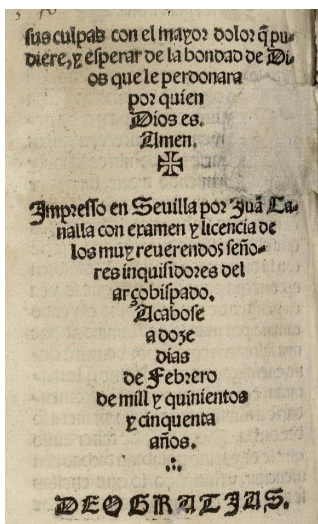 sus culpas con el mayor dolor q̃ pu-
diere, y esperar de la bondad de Di-
os que le perdonara
por quien
Dios es.
Amen.
✠
Impresso en Sevilla por Juã Ca-
nalla con examen y licencia de
los muy reverendos seño-
res inquisidores del
arçobispado.
Acabose
a doze
dias
de Febrero
de mill y quinientos
y cinquenta
años.
DEO GRATIAS.